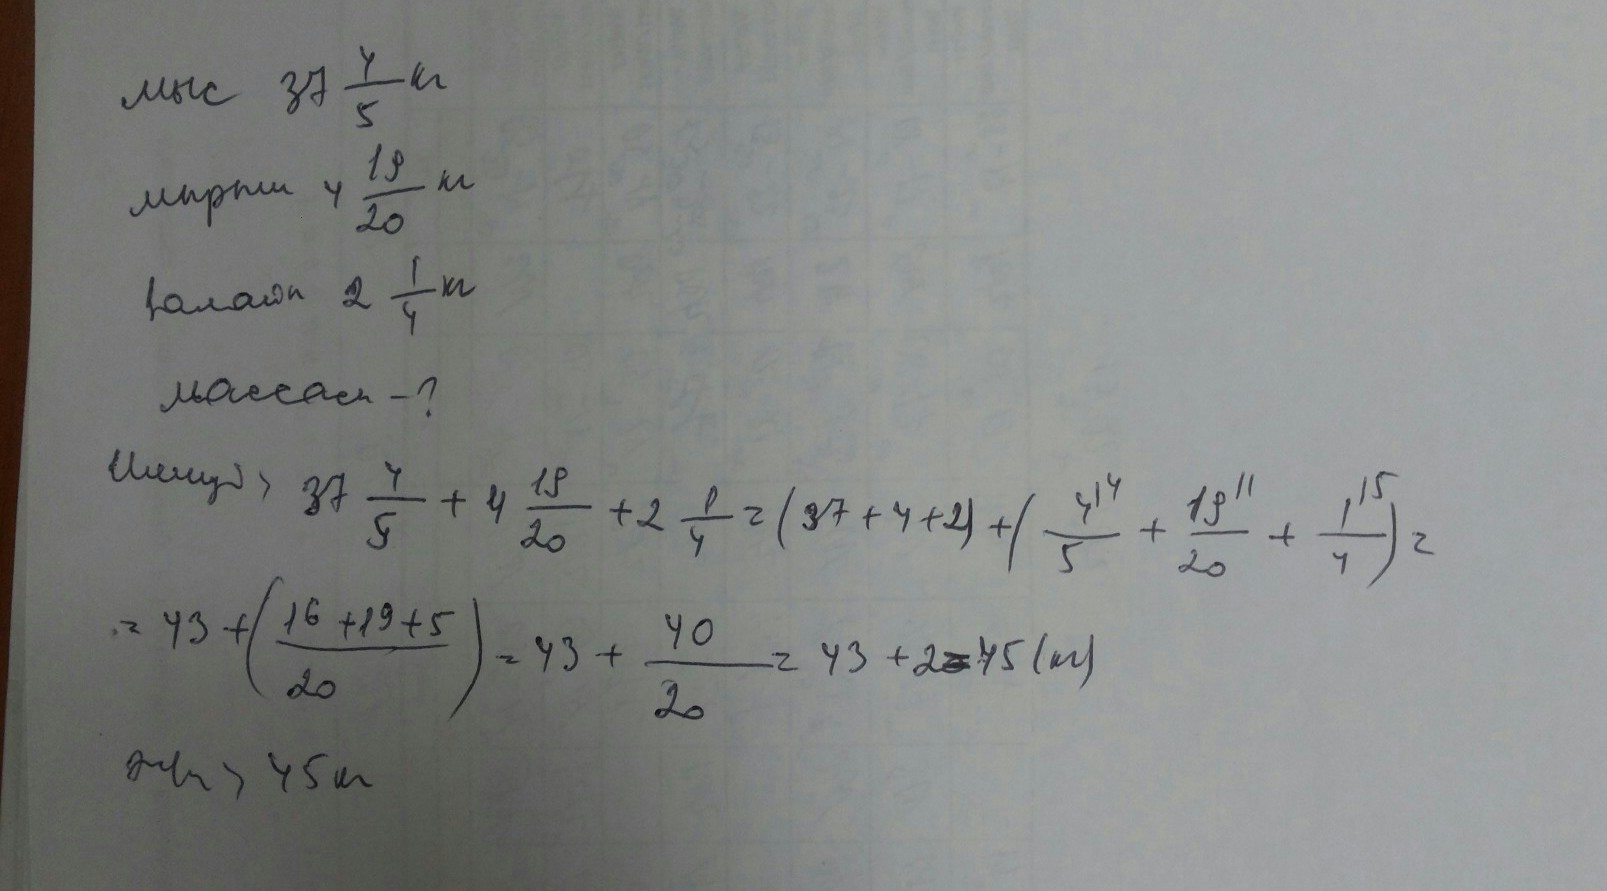 мыс 37 4/5 кг
мырыш 4 19/20 кг
қалайы 2 1/4 кг
массасы - ?
Шешуі > 37 4/5 + 4 19/20 + 2 1/4 = (37 + 4 + 2) + (4^|4/5 + 19^|1/20 + 1^|5/4) =
= 43 + (16 + 19 + 5/20) = 43 + 40/20 = 43 + 2 = 45 (кг)
45 кг